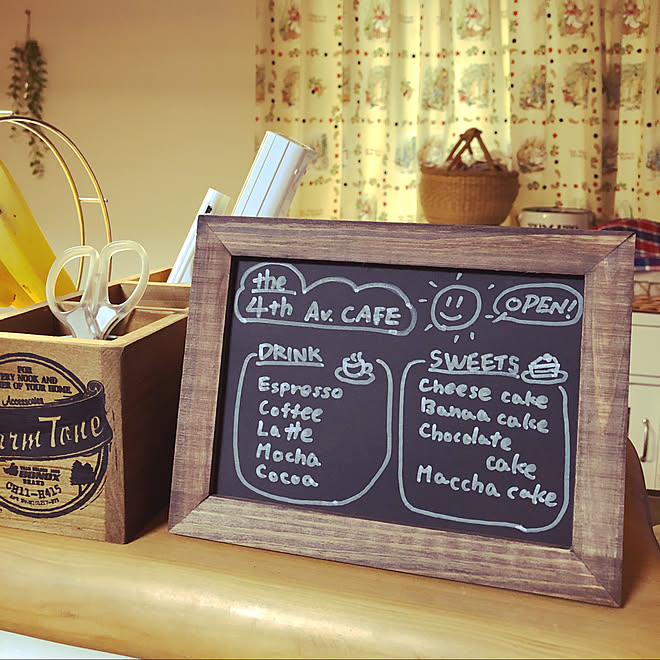 the
4th Av. CAFE
OPEN!
DRINK
Espresso
Coffee
Latte
Mocha
Cocoa
SWEETS
Cheese cake
Banaa cake
Chocolate
cake
Maccha cake
FOR
Accessories
CH11-H415